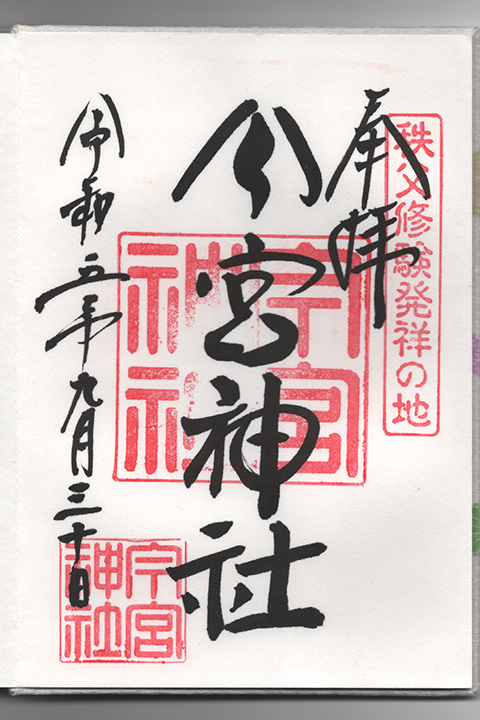 秩父修験発祥の地
奉拝
今宮神社
今宮神社
令和五年九月三十日
今宮神社